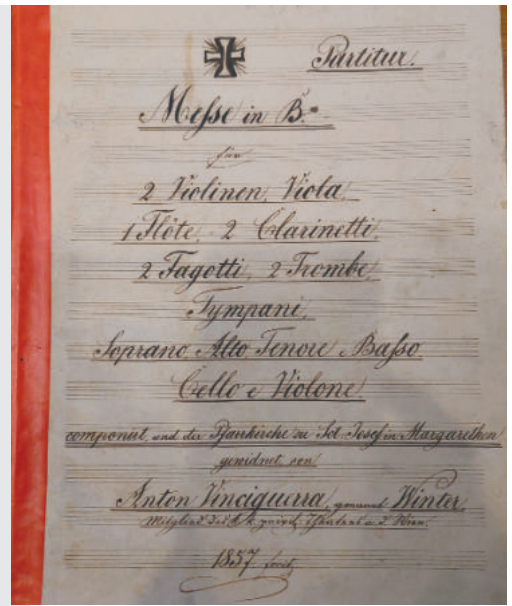 Partitur.
Messe in B.
für
2 Violinen, Viola,
1 Flöte, 2 Clarinetti,
2 Fagotti, 2 Trombe,
Tympani,
Soprano Alto Tenore e Basso
Cello e Violone.
componirt, und der Pfarrkirche zu Sct. Josef in Margarethen
gewidmet von
Anton Vinciguerra, genannt Winter,
Mitglied des k. k. privil. Theaters a. d. Wien.
1857.